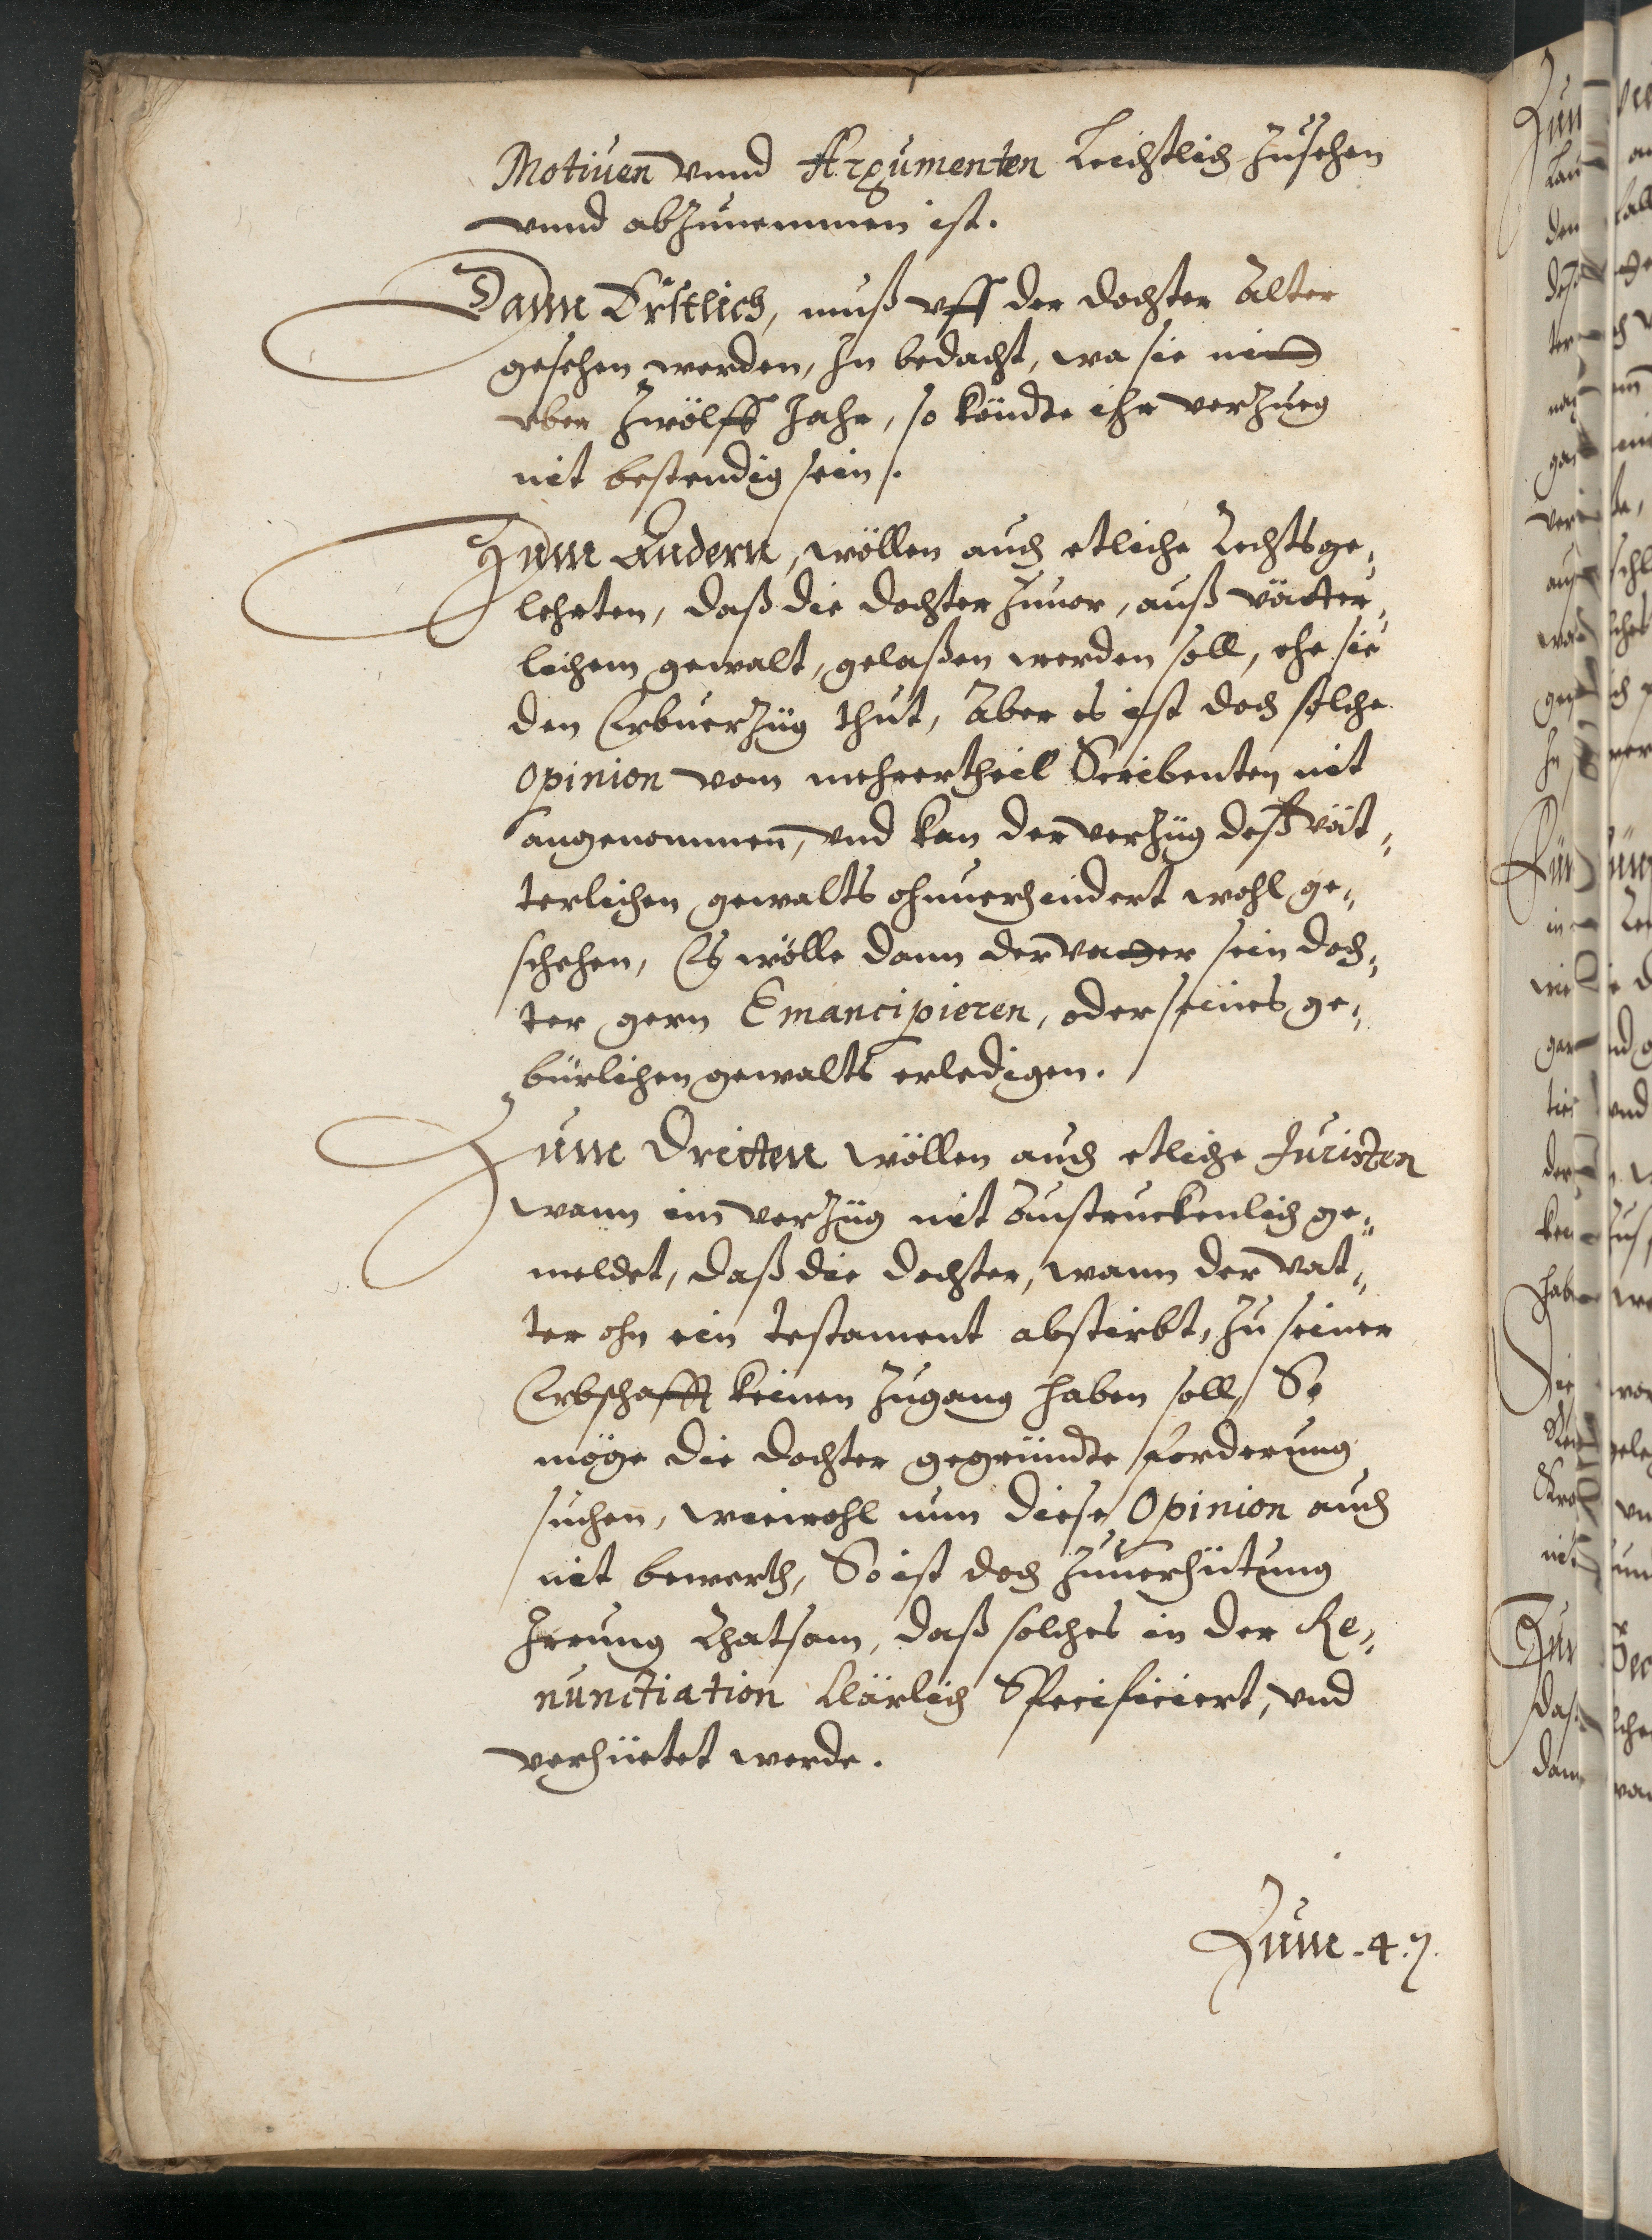 Motiuen vnnd Argumenten Leichtlich zusehen
vnnd abzunemmen ist.
Dann Erstlich, muß vff der dochter Alter
gesehen werden, In bedacht, wa sie nit
vber zwölff Jahr, so köndte ihr verzueg
nit bestendig sein.
Zum Andern, wöllen auch etliche Rechtsge„
lehrten, daß die dochter zuuor, auß vätter„
lichem gewalt, gelaßen werden soll, ehe sie
den Erbuerzüg thut, Aber es ist doch solche
Opinion vom mehrertheil Scribenten nit
angenommen, vnd kan der verzüg deß vät„
terlichen gewalts ohnuerhindert wohl ge„
schehen, Es wölle dann der vatter sein doch„
ter gern Emancipieren, oder seines ge„
bürlichen gewalts erledigen.
Zum Dritten wöllen auch etliche Juristen
wann im verzüg nit Austruckenlich ge„
meldet, daß die dochter, wann der vat„
ter ohn ein testament abstirbt, zu seiner
Erbschafft keinen Zugang haben soll, So
möge die dochter gegründte forderung
suchen, wiewohl nun diese Opinion auch
nit bewerth, So ist doch zuuerhütung
Irrung Rhatsam, daß solches in der Re„
nunctiation klärlich Specificiert, vnd
verhüetet werde.
Zum .4.